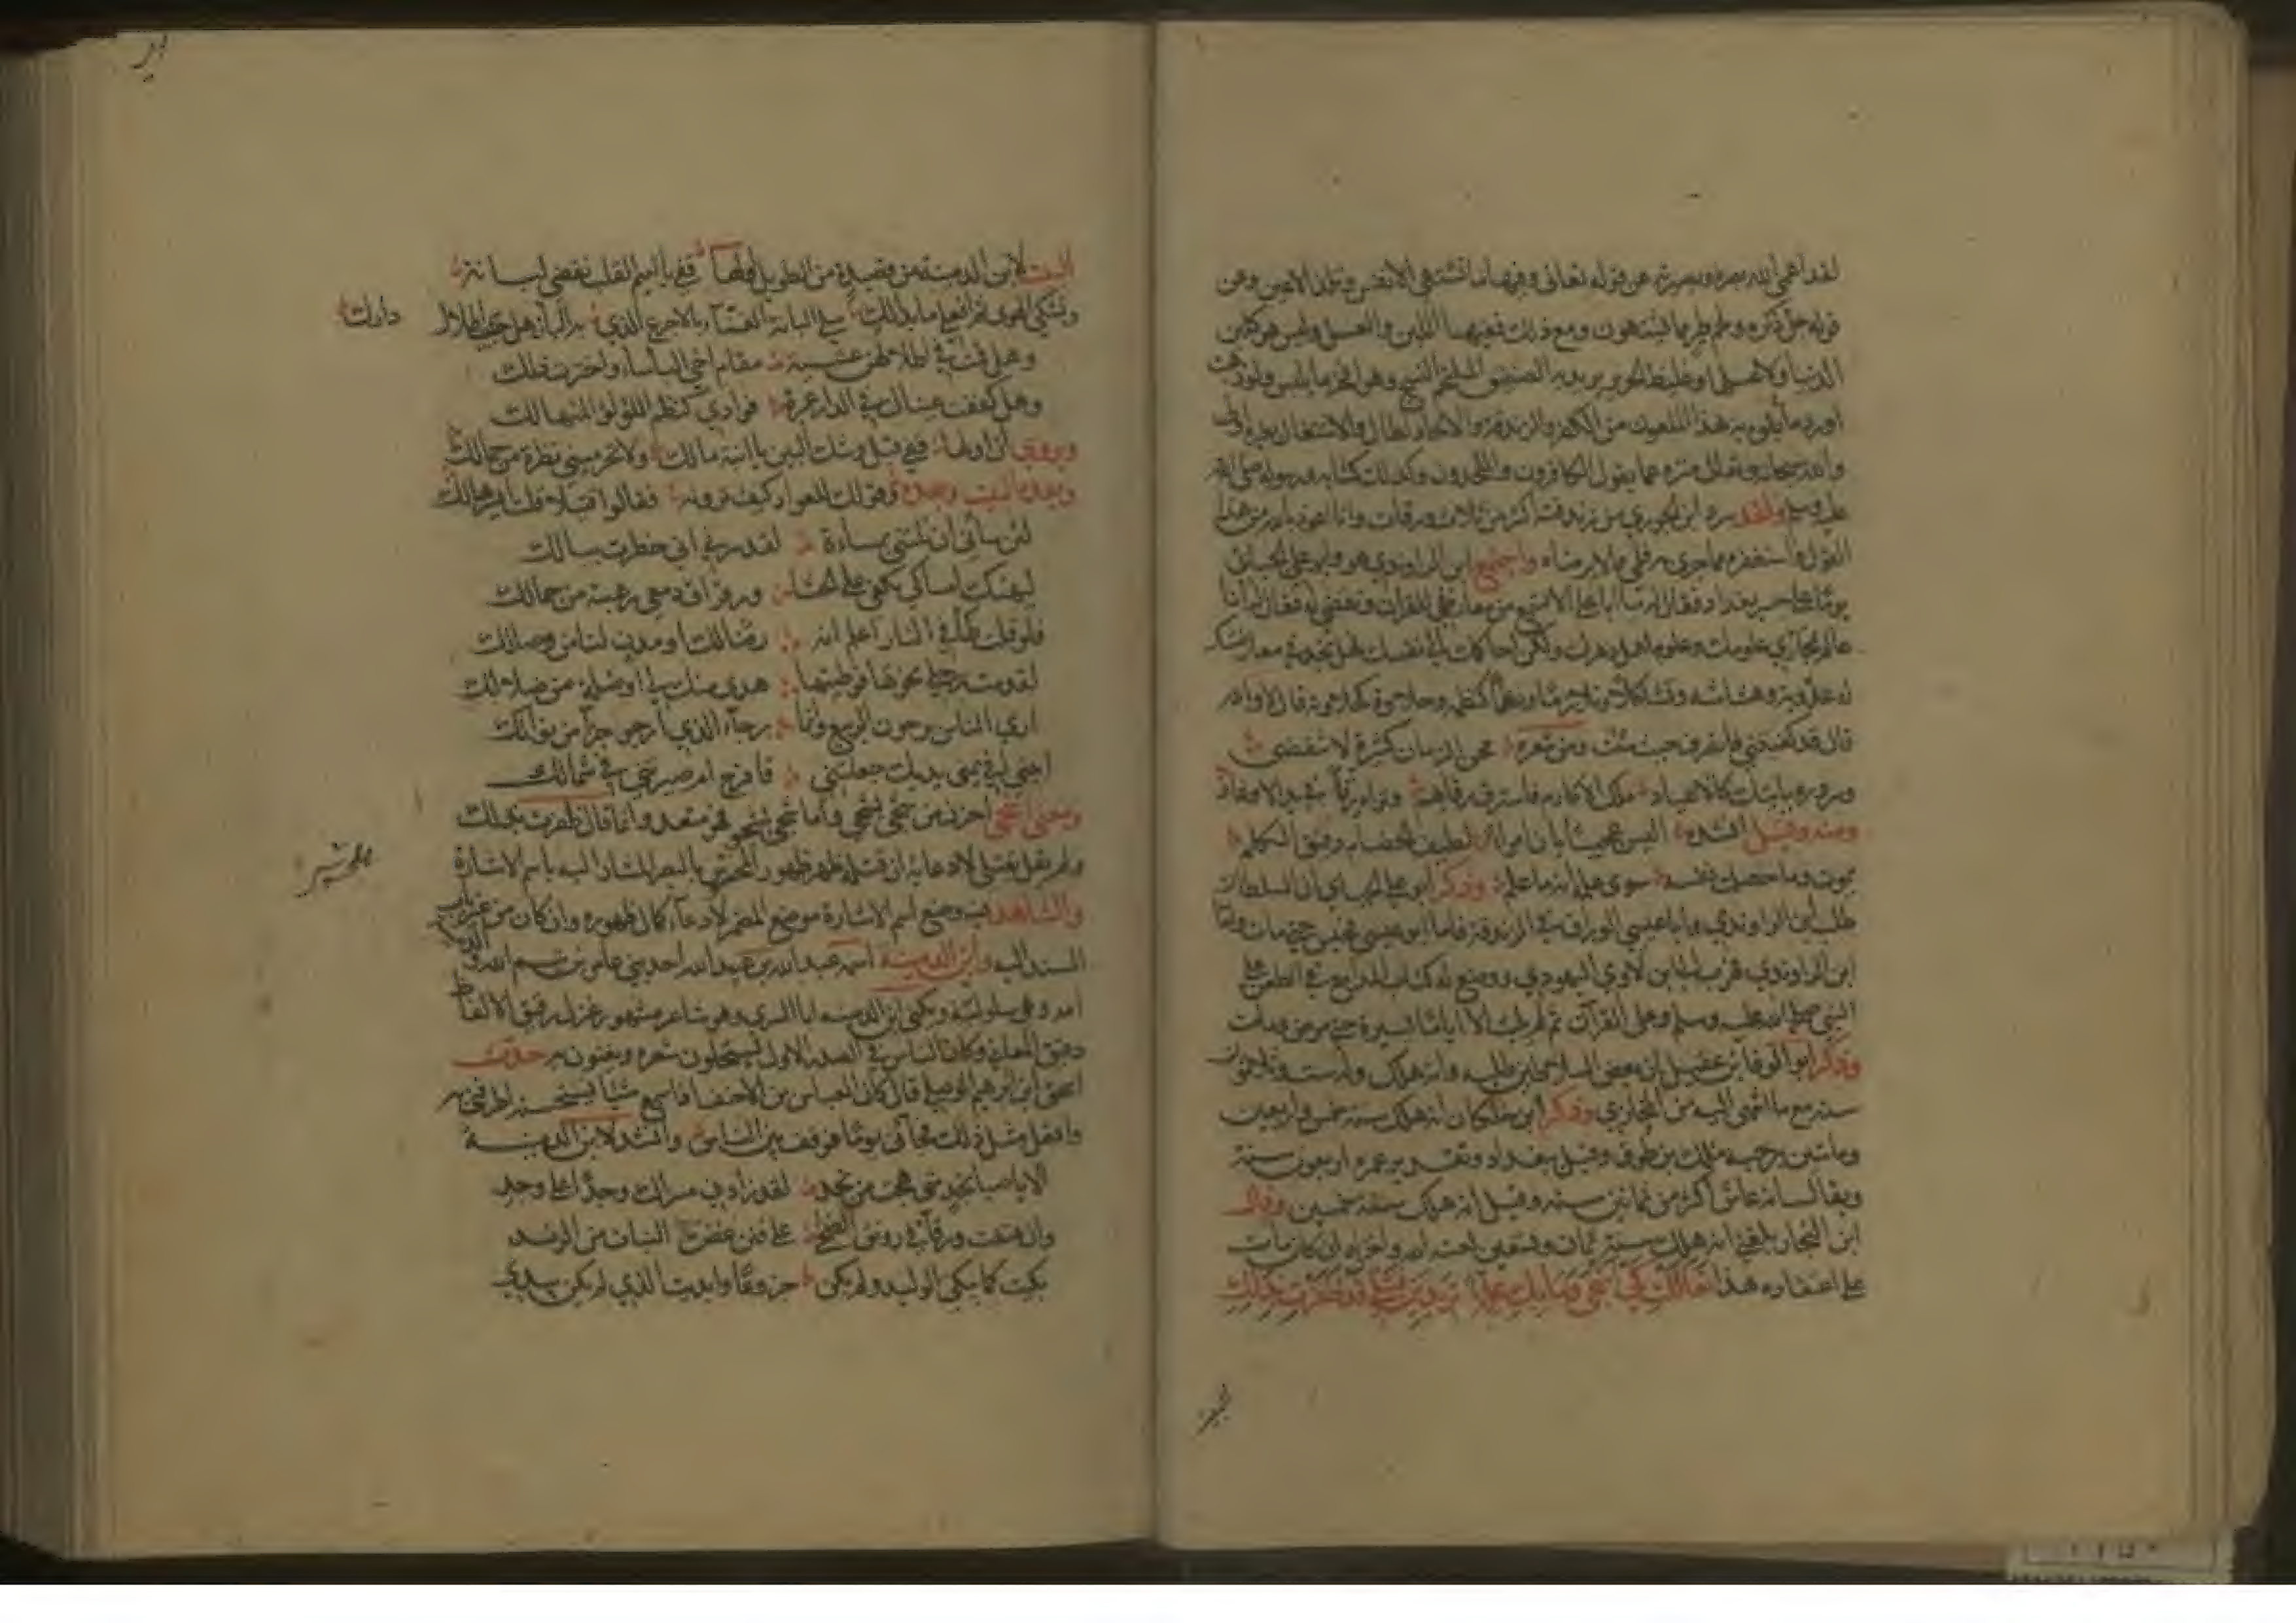 لقد اعمى الله بصره وبصيرته عن قوله تعالى وفيها ما تشتهي الانفس وتلذ الاعين وعن
قوله جل ذكره ولحم طير مما يشتهون ومع ذلك ففيها اللبن والعسل وليس هو كلبن
الدنيا ولا عسلها وغليظ الحرير يريد به الصفيق الملتحم النسج وهو افخر ما يلبس ولو ذهبت
اورد ما تفوه به هذا الملعون من الكفر والزندقة والالحاد لطال والاشتغال بغيره اولى
والله سبحانه وتعالى منزه عما يقول الكافرون والملحدون وكذلك كتابه ورسوله صلى الله
عليه وسلم ولقد سرد ابن الجوزي من زندقته اكثر من ثلاث ورقات وانا اعوذ بالله من هذا
القول واستغفره مما جرى به قلمي مما لا يرضاه واجتمع ابن الراوندي هو وابو علي الجبائي
يوما على جسر بغداد فقال له يا ابا علي الا تسمع من معارضتي للقرآن ونقضي له فقال له انا
عالم بمخازي علومك وعلوم اهل دهرك ولكن احاكمك الى نفسك فهل تجد في معارضتك
له عذوبة وهشاشة وتشاكلا وتلازما ونظما كنظمه وحلاوة كحلاوته قال لا والله
قال قد كفيتني فانصرف حيث شئت ومن شعره محن الزمان كثيرة لا تنقضي
وسروره ياتيك كالاعياد ملك الاكارم فاسترق رقابهم وتراه رقا في يد الاوغاد
ومنه وقيل انشده اليس عجيبا بان امرأ لطيف الخصام دقيق الكلم
يموت وما حصلت نفسه سوى علمه انه ما علم وذكر ابو علي الجبائي ان السلطان
طلب ابن الراوندي وابا عيسى الوراق في الزندقة فاما ابو عيسى فحبس حتى مات واما
ابن الراوندي فهرب الى ابن لاوي اليهودي ووضع له كتاب الدامغ في الطعن على
النبي صلى الله عليه وسلم وعلى القرآن ثم لم يلبث الا اياما يسيرة حتى مرض ومات
وذكر ابو الوفا بن عقيل ان بعض السلاطين طلبه وانه هلك وله ست وثلاثون
سنة مع ما انتهى اليه من المخازي وذكر ابن خلكان انه هلك سنة خمس واربعين
ومائتين برحبة مالك بن طوق وقيل ببغداد وتقدير عمره اربعون سنة
ويقال انه عاش اكثر من ثمانين سنة وقيل انه هلك سنة خمسين وقال
ابن النجار بلغني انه هلك سنة ثمان وتسعين لعنه الله واخزاه ان كان مات
على اعتقاده هذا تعاللت كي اشجى وما بك علة تريدين قتلي قد ظفرت بذلك
البيت
البيت لابن الدمينة من قصيدة من الطويل اولها قفي يا اميم القلب نقضي لبانة
ونشكي الهوى ثم افعلي ما بدا لك سلي البانة الغناء بالاجرع الذي به البان هل حييت اطلال دارك
وهل قمت في اطلالهن عشية مقام اخي البأساء واخترت ذلك
وهل كفكفت عيناي في الدار عبرة فرادى كنظم اللؤلؤ المتهالك
ويروى ان اولها قفي قبل وشك البين يا ابنة مالك ولا تحرميني نظرة من جمالك
وبعده البيت وبعده وقولك للعواد كيف ترونه فقالوا قتيلا قلت ايسر هالك
لئن ساءني ان نلتني بمساءة لقد سرني اني خطرت ببالك
ليهنك امساكي بكفي على الحشا ورقراق دمعي رهبة من جمالك
فلو قلت طأ في النار اعلم انه رضا لك او مدن لنا من وصالك
لقدمت رجلي نحوها فوطيتها هدى منك لي او ضلة من ضلالك
ارى الناس يرجون الربيع وانما رجاء الذي ارجو جدا من نوالك
ابيني افي يمنى يديك جعلتني فافرح ام صيرتني في شمالك
ومعنى اشجى احزن من شجي يشجى واما شجى يشجو فهو متعد وانما قال ظفرت بذلك
ولم يقل بقتلي لادعائه ان قتله ظهر ظهور المحسوس بالبصر المشار اليه باسم الاشارة
والشاهد فيه وضع اسم الاشارة موضع المضمر لادعاء كمال ظهوره وان كان من غير باب
المسند اليه وابن الدمينة اسمه عبد الله بن عبيد الله احد بني عامر بن تيم الله والدمينة
امه وهي سلولية ويكنى ابن الدمينة ابا السري وهو شاعر مشهور غزل رقيق الالفاظ
دقيق المعاني وكان الناس في الصدر الاول يستحلون شعره ويغنون به حدث
اسحق ابن ابرهيم الموصلي قال كان العباس بن الاحنف اذا سمع شيئا يستحسنه اطرفني به
وافعل مثل ذلك فجاءني يوما فوقف بين الناس وانشد لابن الدمينة
الا يا صبا نجد متى هجت من نجد لقد زادني مسراك وجدا على وجد
وان هتفت ورقاء في رونق الضحى على فنن غض النبات من الرند
بكيت كما يبكي الوليد ولم يكن جزوعا وابديت الذي لم يكن يبدي